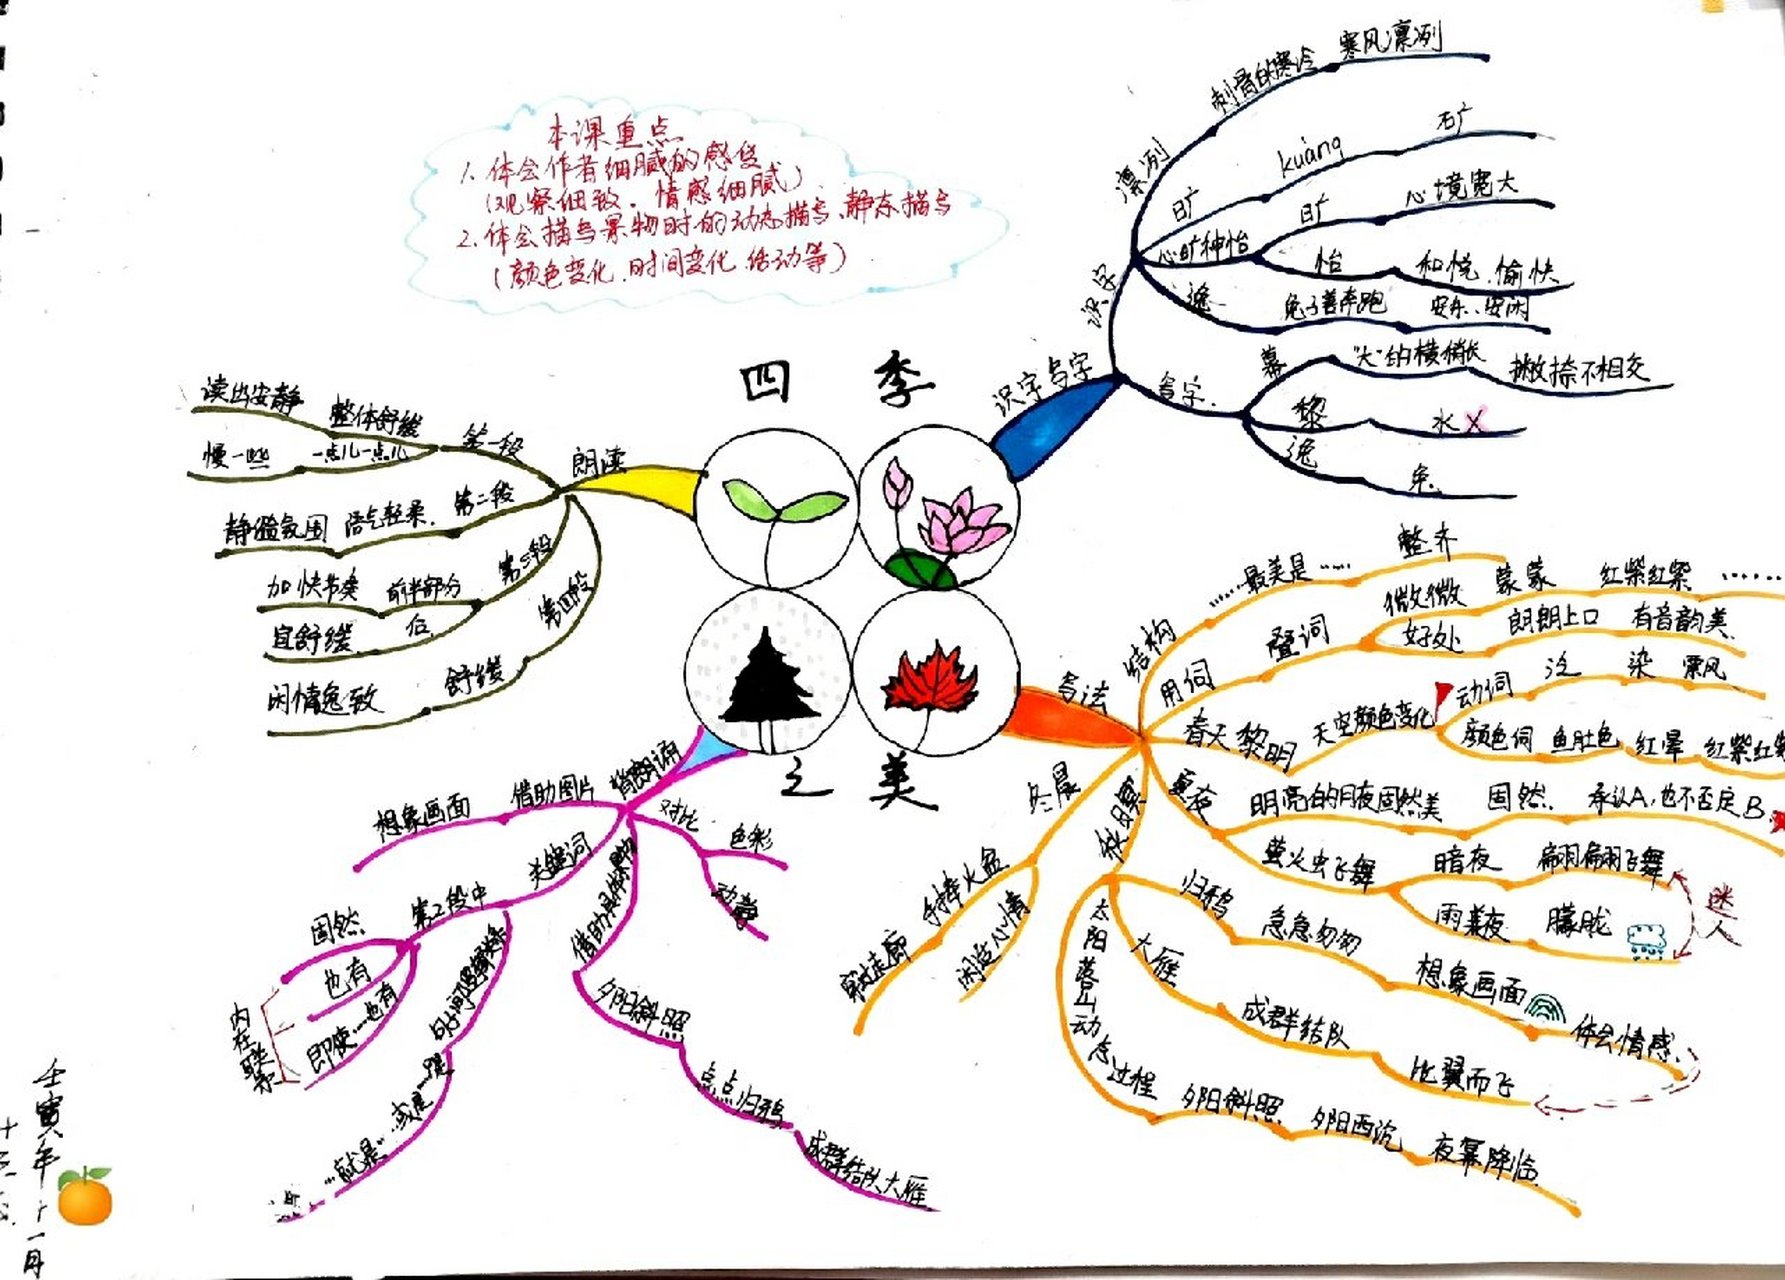 本课重点
1. 体会作者细腻的感觉
(观察细致、情感细腻)
2. 体会描写景物时的动态描写、静态描写
(颜色变化、时间变化、活动等)
四 季
之 美
识字写字
识字
凛冽
刺骨的寒冷
寒风凛冽
旷
kuàng
矿
心旷神怡
旷
心境宽大
怡
和悦、愉快
逸
兔子善奔跑
安乐、安闲
写字.
幕
"大"的横稍长
撇捺不相交
黎
水 X
逸
兔.
朗读
第一段
整体舒缓
读出安静
一点儿一点儿
慢一些
第二段
语气轻柔.
静谧氛围
第三段
前半部分
加快节奏
后.
宜舒缓.
第四段
舒缓
闲情逸致
写法
结构
......最美是......
整齐
用词
叠词
微微
蒙蒙
红紫红紫
......
好处
朗朗上口
有音韵美.
春天黎明
天空颜色变化
动词
泛
染
飘风
颜色词
鱼肚色
红晕
红紫红紫
夏夜
明亮的月夜固然美
固然.
承认A,也不否定B.
萤火虫飞舞
暗夜
翩翩飞舞
雨夜
朦胧
迷人
秋日
归鸦
急急匆匆
想象画面
体会情感.
大雁
成群结队
比翼而飞
太阳落山动态过程
夕阳斜照
夕阳西沉
夜幕降临.
冬晨
手捧火盆
穿过走廊
闲逸心情
借助图片
想象画面
关键词
第二段中
固然.
也有
即使......也有
内在联系
...就是...或是...
对比
色彩
动静
借助具体景物
夕阳斜照
点点归鸦
成群结队大雁
壬寅年十一月